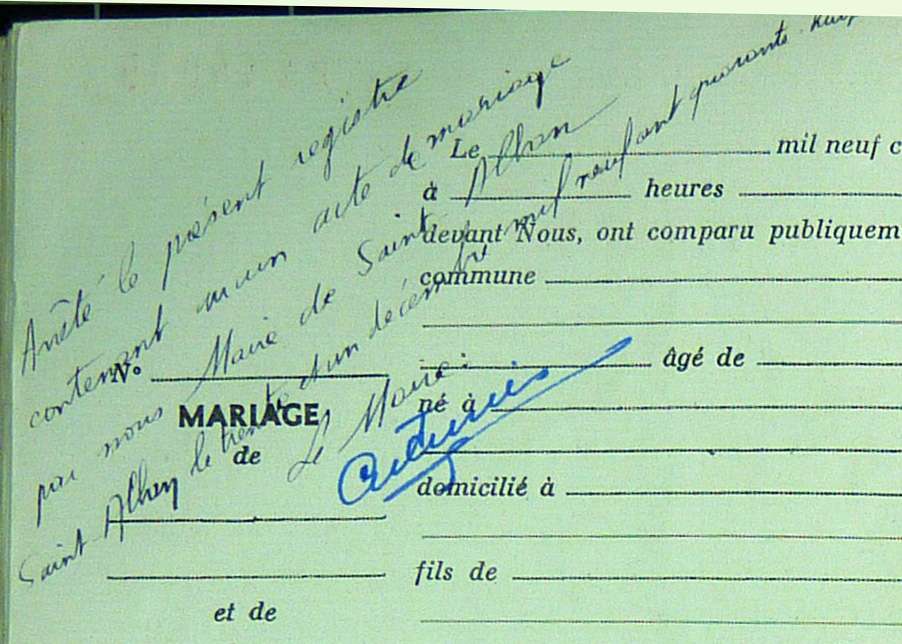 Arrêté le présent registre
contenant aucun acte de mariage
par nous Maire de Saint Alban
Saint Alban le trente et un décembre mil neuf cent quarante huit
Le Maire:
Le mil neuf c
à heures
devant Nous, ont comparu publiquem
commune
âgé de
né à
domicilié à
fils de
N°
MARIAGE
de
et de